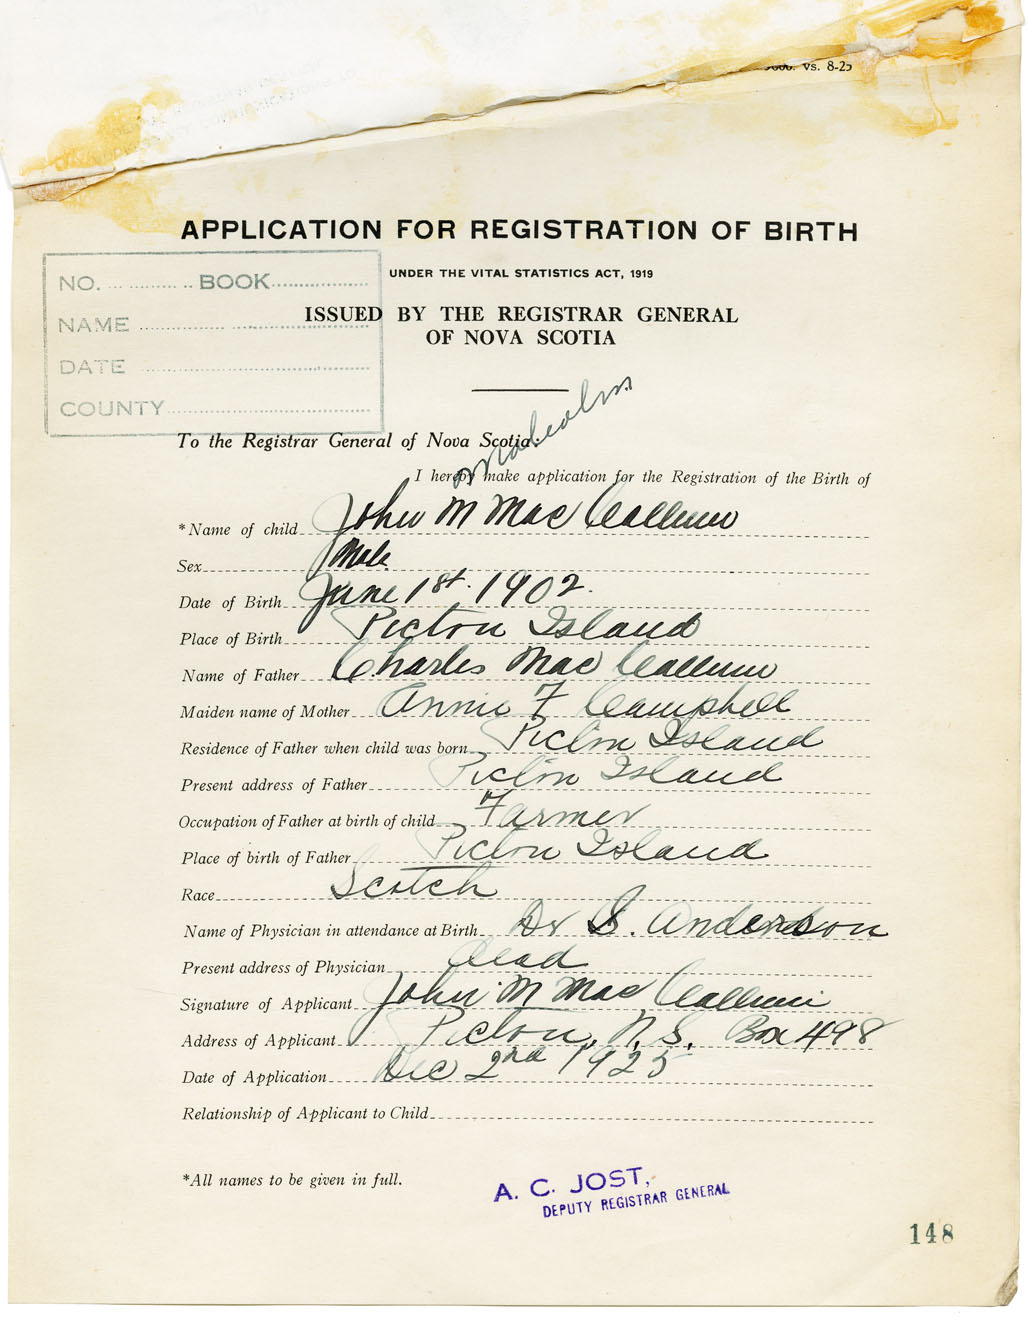 vs. 8-25
APPLICATION FOR REGISTRATION OF BIRTH
UNDER THE VITAL STATISTICS ACT, 1919
ISSUED BY THE REGISTRAR GENERAL
OF NOVA SCOTIA
NO. BOOK
NAME
DATE
COUNTY
To the Registrar General of Nova Scotia:
Malcolm
I hereby make application for the Registration of the Birth of
*Name of child John M MacCallum
Sex Male
Date of Birth June 1st. 1902.
Place of Birth Pictou Island
Name of Father Charles MacCallum
Maiden name of Mother Annie F Campbell
Residence of Father when child was born Pictou Island
Present address of Father Pictou Island
Occupation of Father at birth of child Farmer
Place of birth of Father Pictou Island
Race Scotch
Name of Physician in attendance at Birth Dr S. Anderson
Present address of Physician dead
Signature of Applicant John M MacCallum
Address of Applicant Pictou, N.S. Box 498
Date of Application Dec 2nd 1925
Relationship of Applicant to Child
*All names to be given in full.
A. C. JOST,
DEPUTY REGISTRAR GENERAL
148